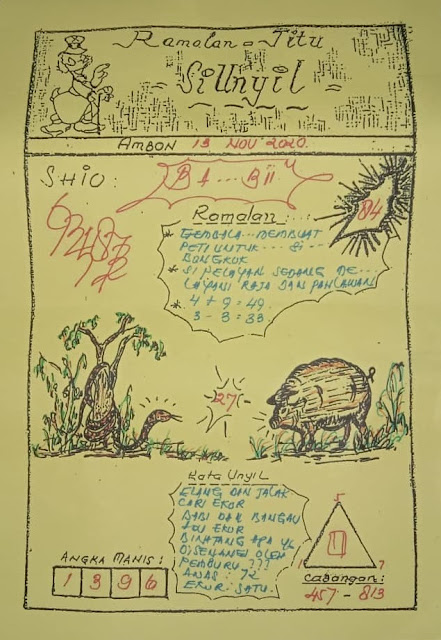 Ramalan = Jitu
SiUnyil
AMBON 13 NOV 2020.
SHIO :
BA ... BI"
84
Ramalan :
* GEMBALA... MEMBUAT
PETI UNTUK... SI...
BONGKOK
* SI PELAYAN SEDANG ME...
LAYANI RAJA DAN PAHLAWAN
* 4 + 9 = 49
3 - 3 = 33
27
Kata Unyil
ELANG DAN JALAK
CARI EKOR
BABI DAN BANGAU
JOU EKOR
BINATANG APA YG
DISENANGI OLEH
PEMBURU ???
AWAS : 72
EKOR : SATU.
ANGKA MANIS :
1 3 9 6
5
4
1 7
Cabangan :
457 - 813